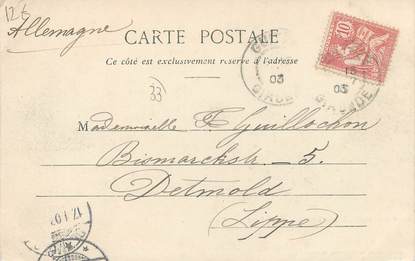 12€
Allemagne
CARTE POSTALE
Ce côté est exclusivement réservé à l'adresse
10
03
GIRONDE
03
33
Mademoiselle F. Guillochon
Bismarckstr. 5.
Detmold
(Lippe)